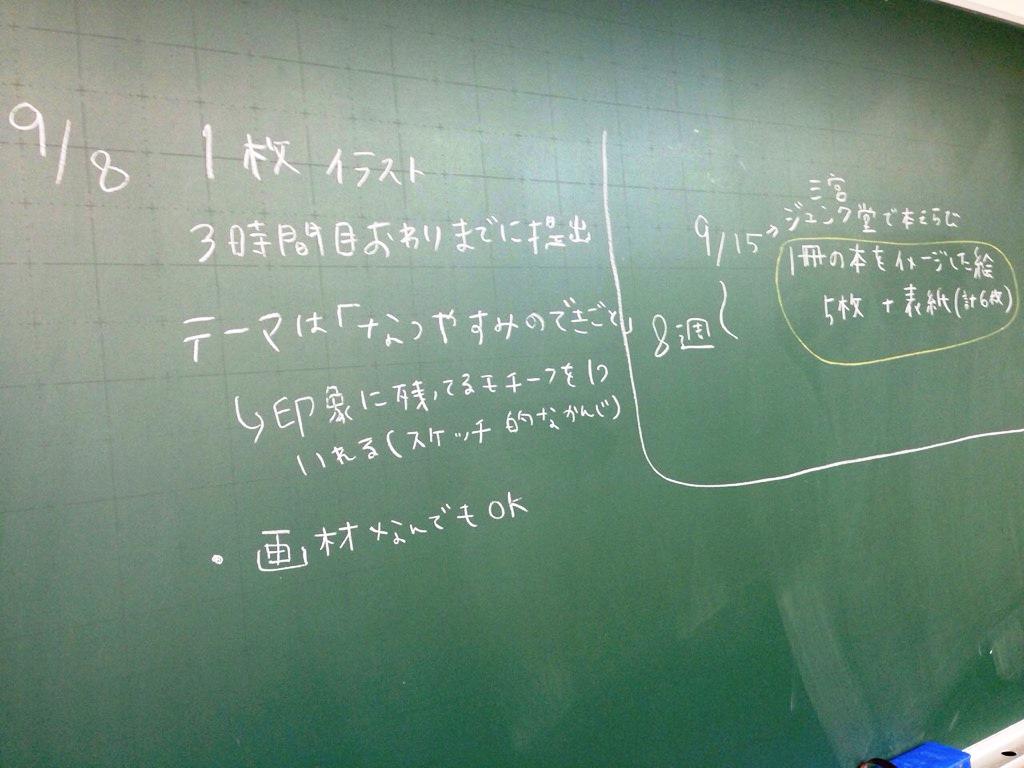 9/8 1枚 イラスト
3時間目おわりまでに提出
テーマは「なつやすみのできごと」
↳印象に残ってるモチーフを1つ
いれる(スケッチ的なかんじ)
・画材なんでもOK
三宮
9/15→ジュンク堂で本えらび
1冊の本をイメージした絵
5枚+表紙(計6枚)
8週